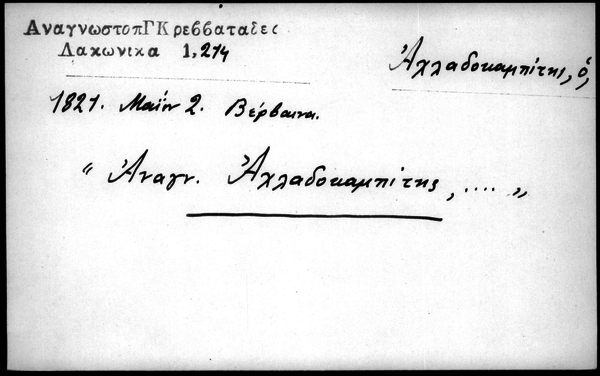 ΑναγνωστοπΓΚρεββαταδες
Λακωνικα 1,214
Ἀχλαδοκαμπίτης, ὁ,
1821. Μαΐου 2. Βέρβαινα.
" Ἀναγν. Ἀχλαδοκαμπίτης, .... "